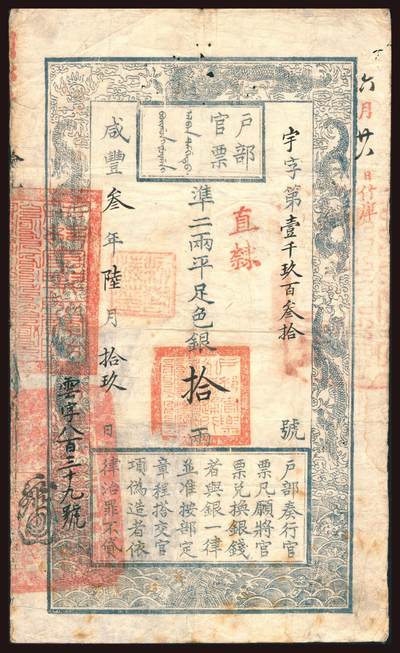 六月廿八日行庫
戶部
官票
宇字第壹千玖百叁拾號
直隸
準二兩平足色銀拾兩
咸豐叁年陸月拾玖日
雲字八百二十九號
戶部奏行官
票凡願將官
票兌換銀錢
者與銀一律
並准按部定
章程搭交官
項偽造者依
律治罪不貸